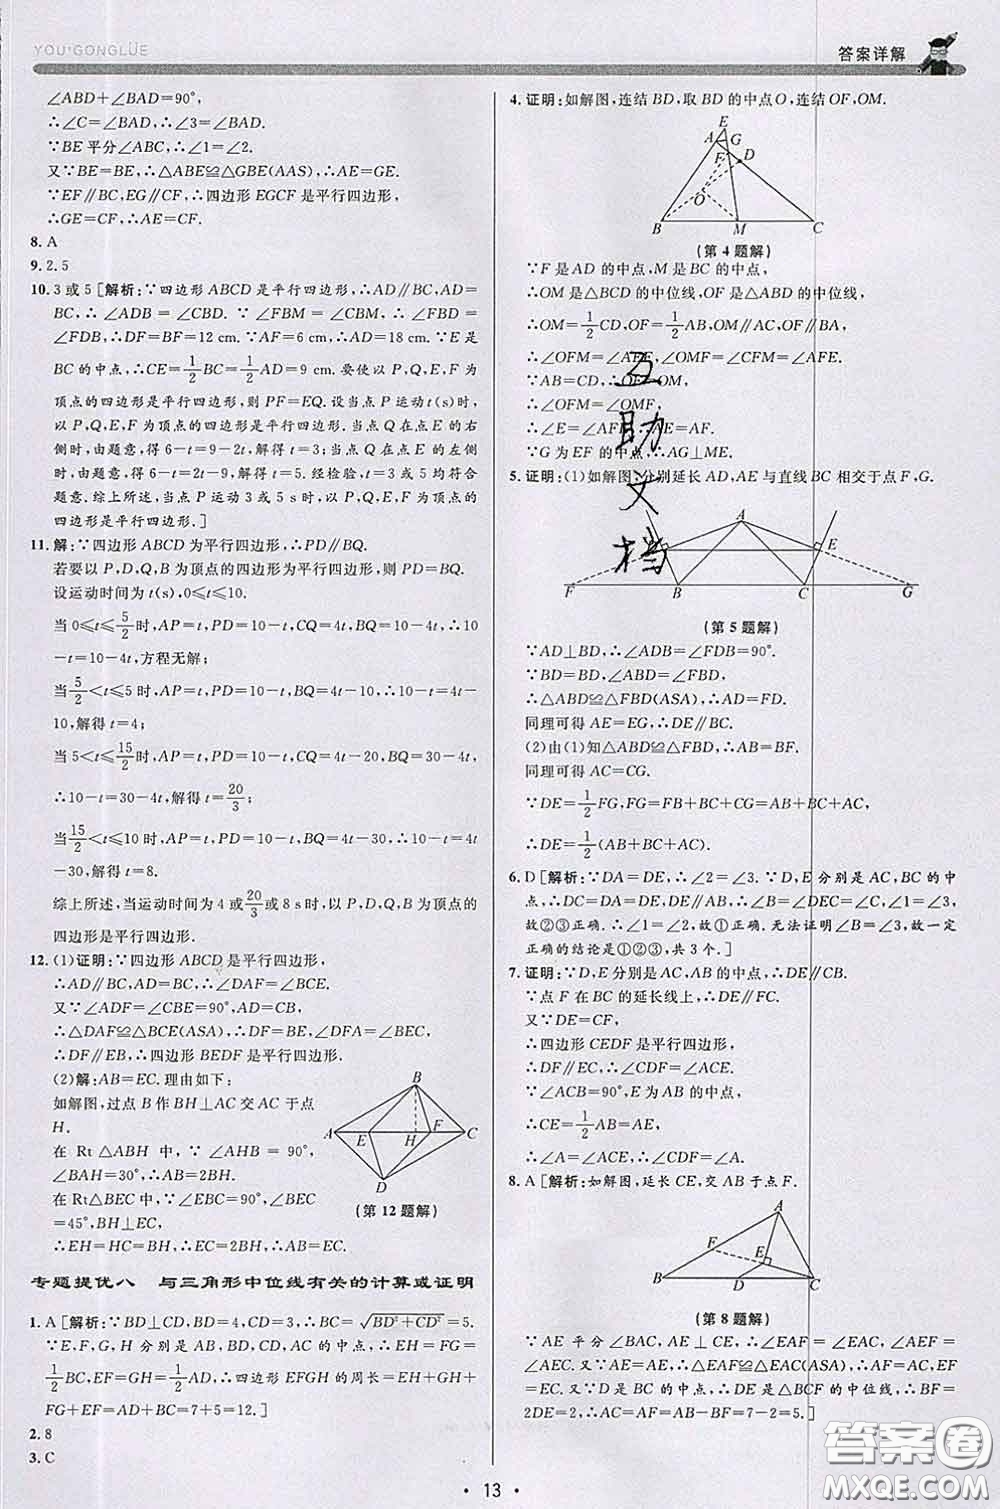 YOU·GONGLÜE
答案详解
∠ABD+∠BAD=90°,
∴∠C=∠BAD,∴∠3=∠BAD.
∵BE平分∠ABC,∴∠1=∠2.
又∵BE=BE,∴△ABE≌△GBE(AAS),∴AE=GE.
∵EF∥BC,EG∥CF,∴四边形EGCF是平行四边形,
∴GE=CF,∴AE=CF.
8. A
9. 2.5
10. 3或5[解析:∵四边形ABCD是平行四边形,∴AD∥BC,AD=
BC,∴∠ADB=∠CBD.∵∠FBM=∠CBM,∴∠FBD=
∠FDB,∴DF=BF=12 cm.∵AF=6 cm,∴AD=18 cm.∵E是
BC的中点,∴CE=1/2BC=1/2AD=9 cm.要使以P,Q,E,F为
顶点的四边形是平行四边形,则PF=EQ.设当点P运动t(s)时,
以P,Q,E,F为顶点的四边形是平行四边形.当点Q在点E的右
侧时,由题意,得6-t=9-2t,解得t=3;当点Q在点E的左侧
时,由题意,得6-t=2t-9,解得t=5.经检验,t=3或5均符合
题意.综上所述,当点P运动3或5 s时,以P,Q,E,F为顶点的
四边形是平行四边形.]
11. 解:∵四边形ABCD为平行四边形,∴PD∥BQ.
若要以P,D,Q,B为顶点的四边形为平行四边形,则PD=BQ.
设运动时间为t(s),0≤t≤10.
当0≤t≤5/2时,AP=t,PD=10-t,CQ=4t,BQ=10-4t,∴10
-t=10-4t,方程无解;
当5/2<t≤5时,AP=t,PD=10-t,BQ=4t-10,∴10-t=4t-
10,解得t=4;
当5<t≤15/2时,AP=t,PD=10-t,CQ=4t-20,BQ=30-4t,
∴10-t=30-4t,解得t=20/3;
当15/2<t≤10时,AP=t,PD=10-t,BQ=4t-30,∴10-t=4t
-30,解得t=8.
综上所述,当运动时间为4或20/3或8 s时,以P,D,Q,B为顶点的
四边形是平行四边形.
12. (1)证明:∵四边形ABCD是平行四边形,
∴AD∥BC,AD=BC,∴∠DAF=∠BCE.
又∵∠ADF=∠CBE=90°,AD=CB,
∴△DAF≌△BCE(ASA),∴DF=BE,∠DFA=∠BEC,
∴DF∥EB,∴四边形BEDF是平行四边形.
(2)解:AB=EC.理由如下:
如解图,过点B作BH⊥AC交AC于点
H.
在Rt△ABH中,∵∠AHB=90°,
∠BAH=30°,∴AB=2BH.
在Rt△BEC中,∵∠EBC=90°,∠BEC
=45°,BH⊥EC,
∴EH=HC=BH,∴EC=2BH,∴AB=EC.
B
A E H F C
D
(第12题解)
专题提优八 与三角形中位线有关的计算或证明
1. A[解析:∵BD⊥CD,BD=4,CD=3,∴BC=√BD²+CD²=5.
∵E,F,G,H分别是AB,AC,CD,BD的中点,∴EH=FG=
1/2BC,EF=GH=1/2AD,∴四边形EFGH的周长=EH+GH+
FG+EF=AD+BC=7+5=12.]
2. 8
3. C
4. 证明:如解图,连结BD,取BD的中点O,连结OF,OM.
E
A G
F D
O
B M C
(第4题解)
∵F是AD的中点,M是BC的中点,
∴OM是△BCD的中位线,OF是△ABD的中位线,
∴OM=1/2CD,OF=1/2AB,OM∥CD,OF∥BA,
∴∠OFM=∠AEF,∠OMF=∠CFM=∠AFE.
∵AB=CD,∴OF=OM,
∴∠OFM=∠OMF,
∴∠E=∠AFE,∴AE=AF.
∵G为EF的中点,∴AG⊥ME.
5. 证明:(1)如解图,分别延长AD,AE与直线BC相交于点F,G.
A
E
F B C G
(第5题解)
∵AD⊥BD,∴∠ADB=∠FDB=90°.
∵BD=BD,∠ABD=∠FBD,
∴△ABD≌△FBD(ASA),∴AD=FD.
同理可得AE=EG,∴DE∥BC.
(2)由(1)知△ABD≌△FBD,∴AB=BF.
同理可得AC=CG.
∵DE=1/2FG,FG=FB+BC+CG=AB+BC+AC,
∴DE=1/2(AB+BC+AC).
6. D[解析:∵DA=DE,∴∠2=∠3.∵D,E分别是AC,BC的中
点,∴DC=DA=DE,DE∥AB,∴∠B=∠DEC=∠C,∠1=∠3,
故②③正确,∴∠1=∠2,故①正确.无法证明∠B=∠1,故一定
正确的结论是①②③,共3个.]
7. 证明:∵D,E分别是AC,AB的中点,∴DE∥BC.
∵点F在BC的延长线上,∴DE∥FC.
又∵DE=CF,
∴四边形CEDF是平行四边形,
∴DF∥CE,∴∠F=∠BCE.
∵∠ACB=90°,E为AB的中点,
∴CE=1/2AB=AE,
∴∠A=∠ACE,∴∠F=∠A.
8. A[解析:如解图,延长CE,交AB于点F.
A
F
E
B D C
(第8题解)
∵AE平分∠BAC,AE⊥CE,∴∠EAF=∠EAC,∠AEF=
∠AEC.又∵AE=AE,∴△EAF≌△EAC(ASA),∴AF=AC,EF
=EC.又∵D是BC的中点,∴DE是△BCF的中位线,∴BF=
2DE=2,∴AC=AF=AB-BF=7-2=5.]
互
助
文
档
· 13 ·
答案圈
MXQE.COM